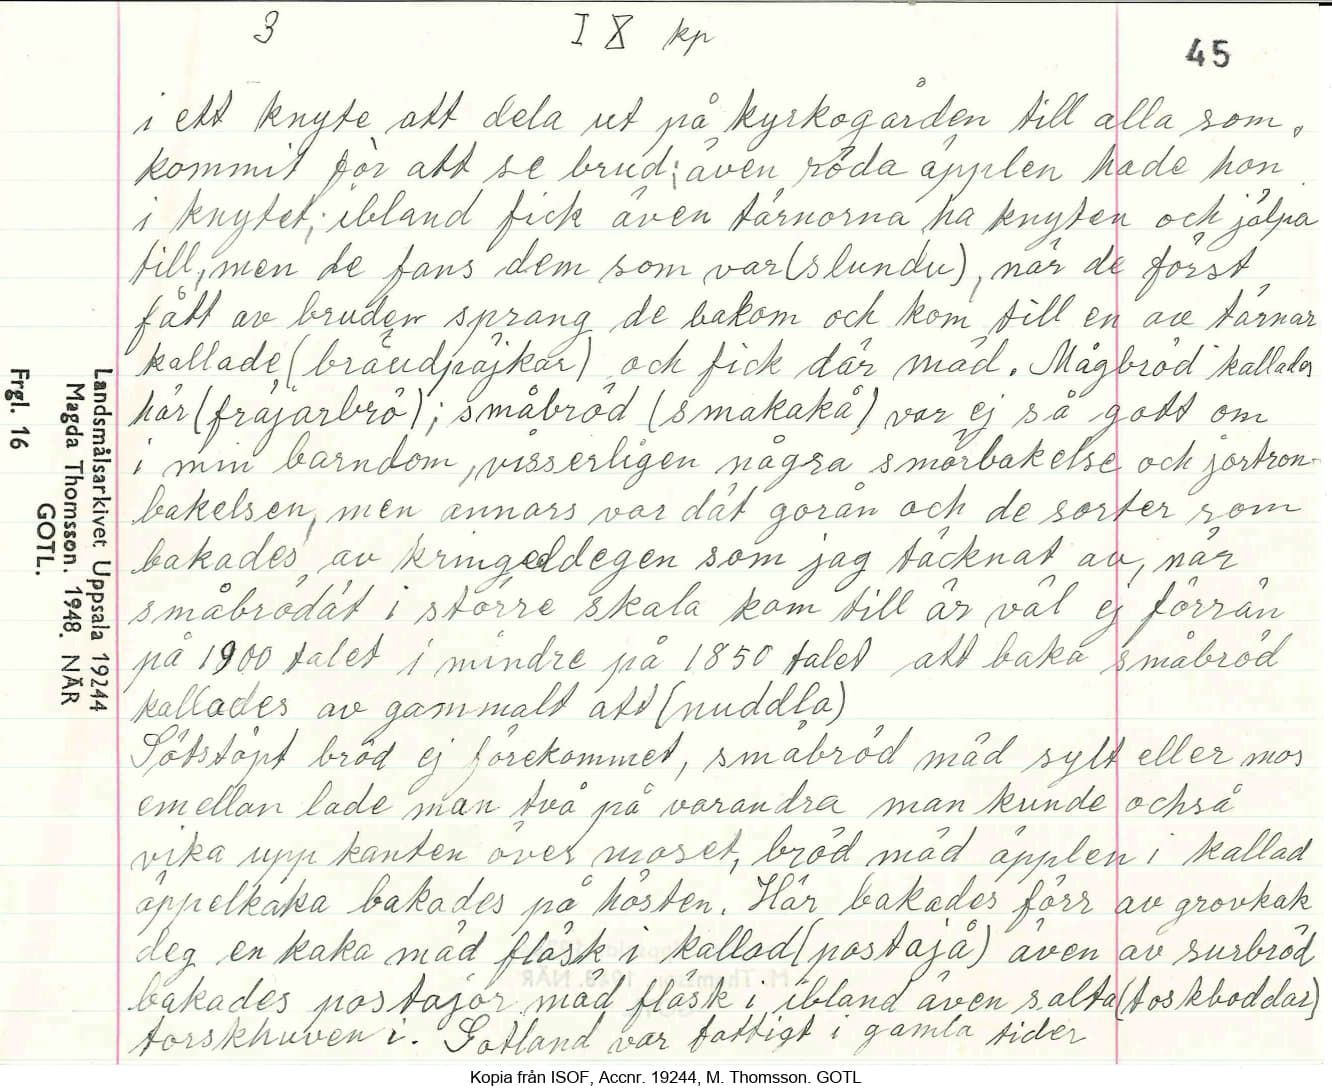 3 I X kp 45
i ett knyte att dela ut på kyrkogården till alla som
kommit för att se brud; även röda äpplen hade hon
i knytet; ibland fick även tärnorna ha knyten och jälpa
till, men de fans dem som var (slundu), när de först
fått av bruden sprang de bakom och kom till en av tärnar
kallade (bräudpäjkar) och fick där mäd. Mågbröd kallades
här (fräjarbrö); småbröd (smakakå) var ej så gott om
i min barndom, visserligen några smörbakelse och jortron-
bakelsen, men annars var dät gorån och de sorter som
bakades av kringeldegen som jag täcknat av, när
småbrödät i större skala kom till är väl ej förrän
på 1900 talet i mindre på 1850 talet att baka småbröd
kallades av gammalt att (nuddla)
Sötstöpt bröd ej förekommet, småbröd mäd sylt eller mos
emellan lade man två på varandra man kunde också
vika upp kanten över moset, bröd mäd äpplen i kallad
äppelkaka bakades på hösten. Här bakades förr av grovkak
deg en kaka mäd fläsk i kallad (postajå) även av surbröd
bakades postajor mäd fläsk i ibland även salta (toskboddar)
torskhuven i. Gotland var fattigt i gamla tider
Landsmålsarkivet, Uppsala 19244
Magda Thomsson. 1948. NÄR
GOTL.
Frgl. 16
Kopia från ISOF, Accnr. 19244, M. Thomsson. GOTL